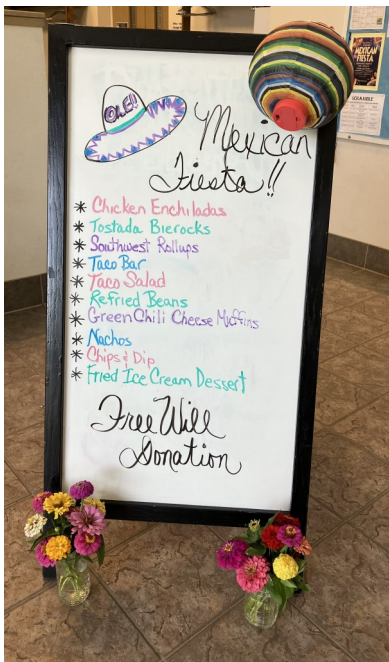 OLE!!
Mexican
Fiesta!!
* Chicken Enchiladas
* Tostada Bierocks
* Southwest Rollups
* Taco Bar
* Taco Salad
* Refried Beans
* Green Chili Cheese Muffins
* Nachos
* Chips & Dip
* Fried Ice Cream Dessert
Free Will
Donation
MEXICAN
FIESTA
SCRABBLE